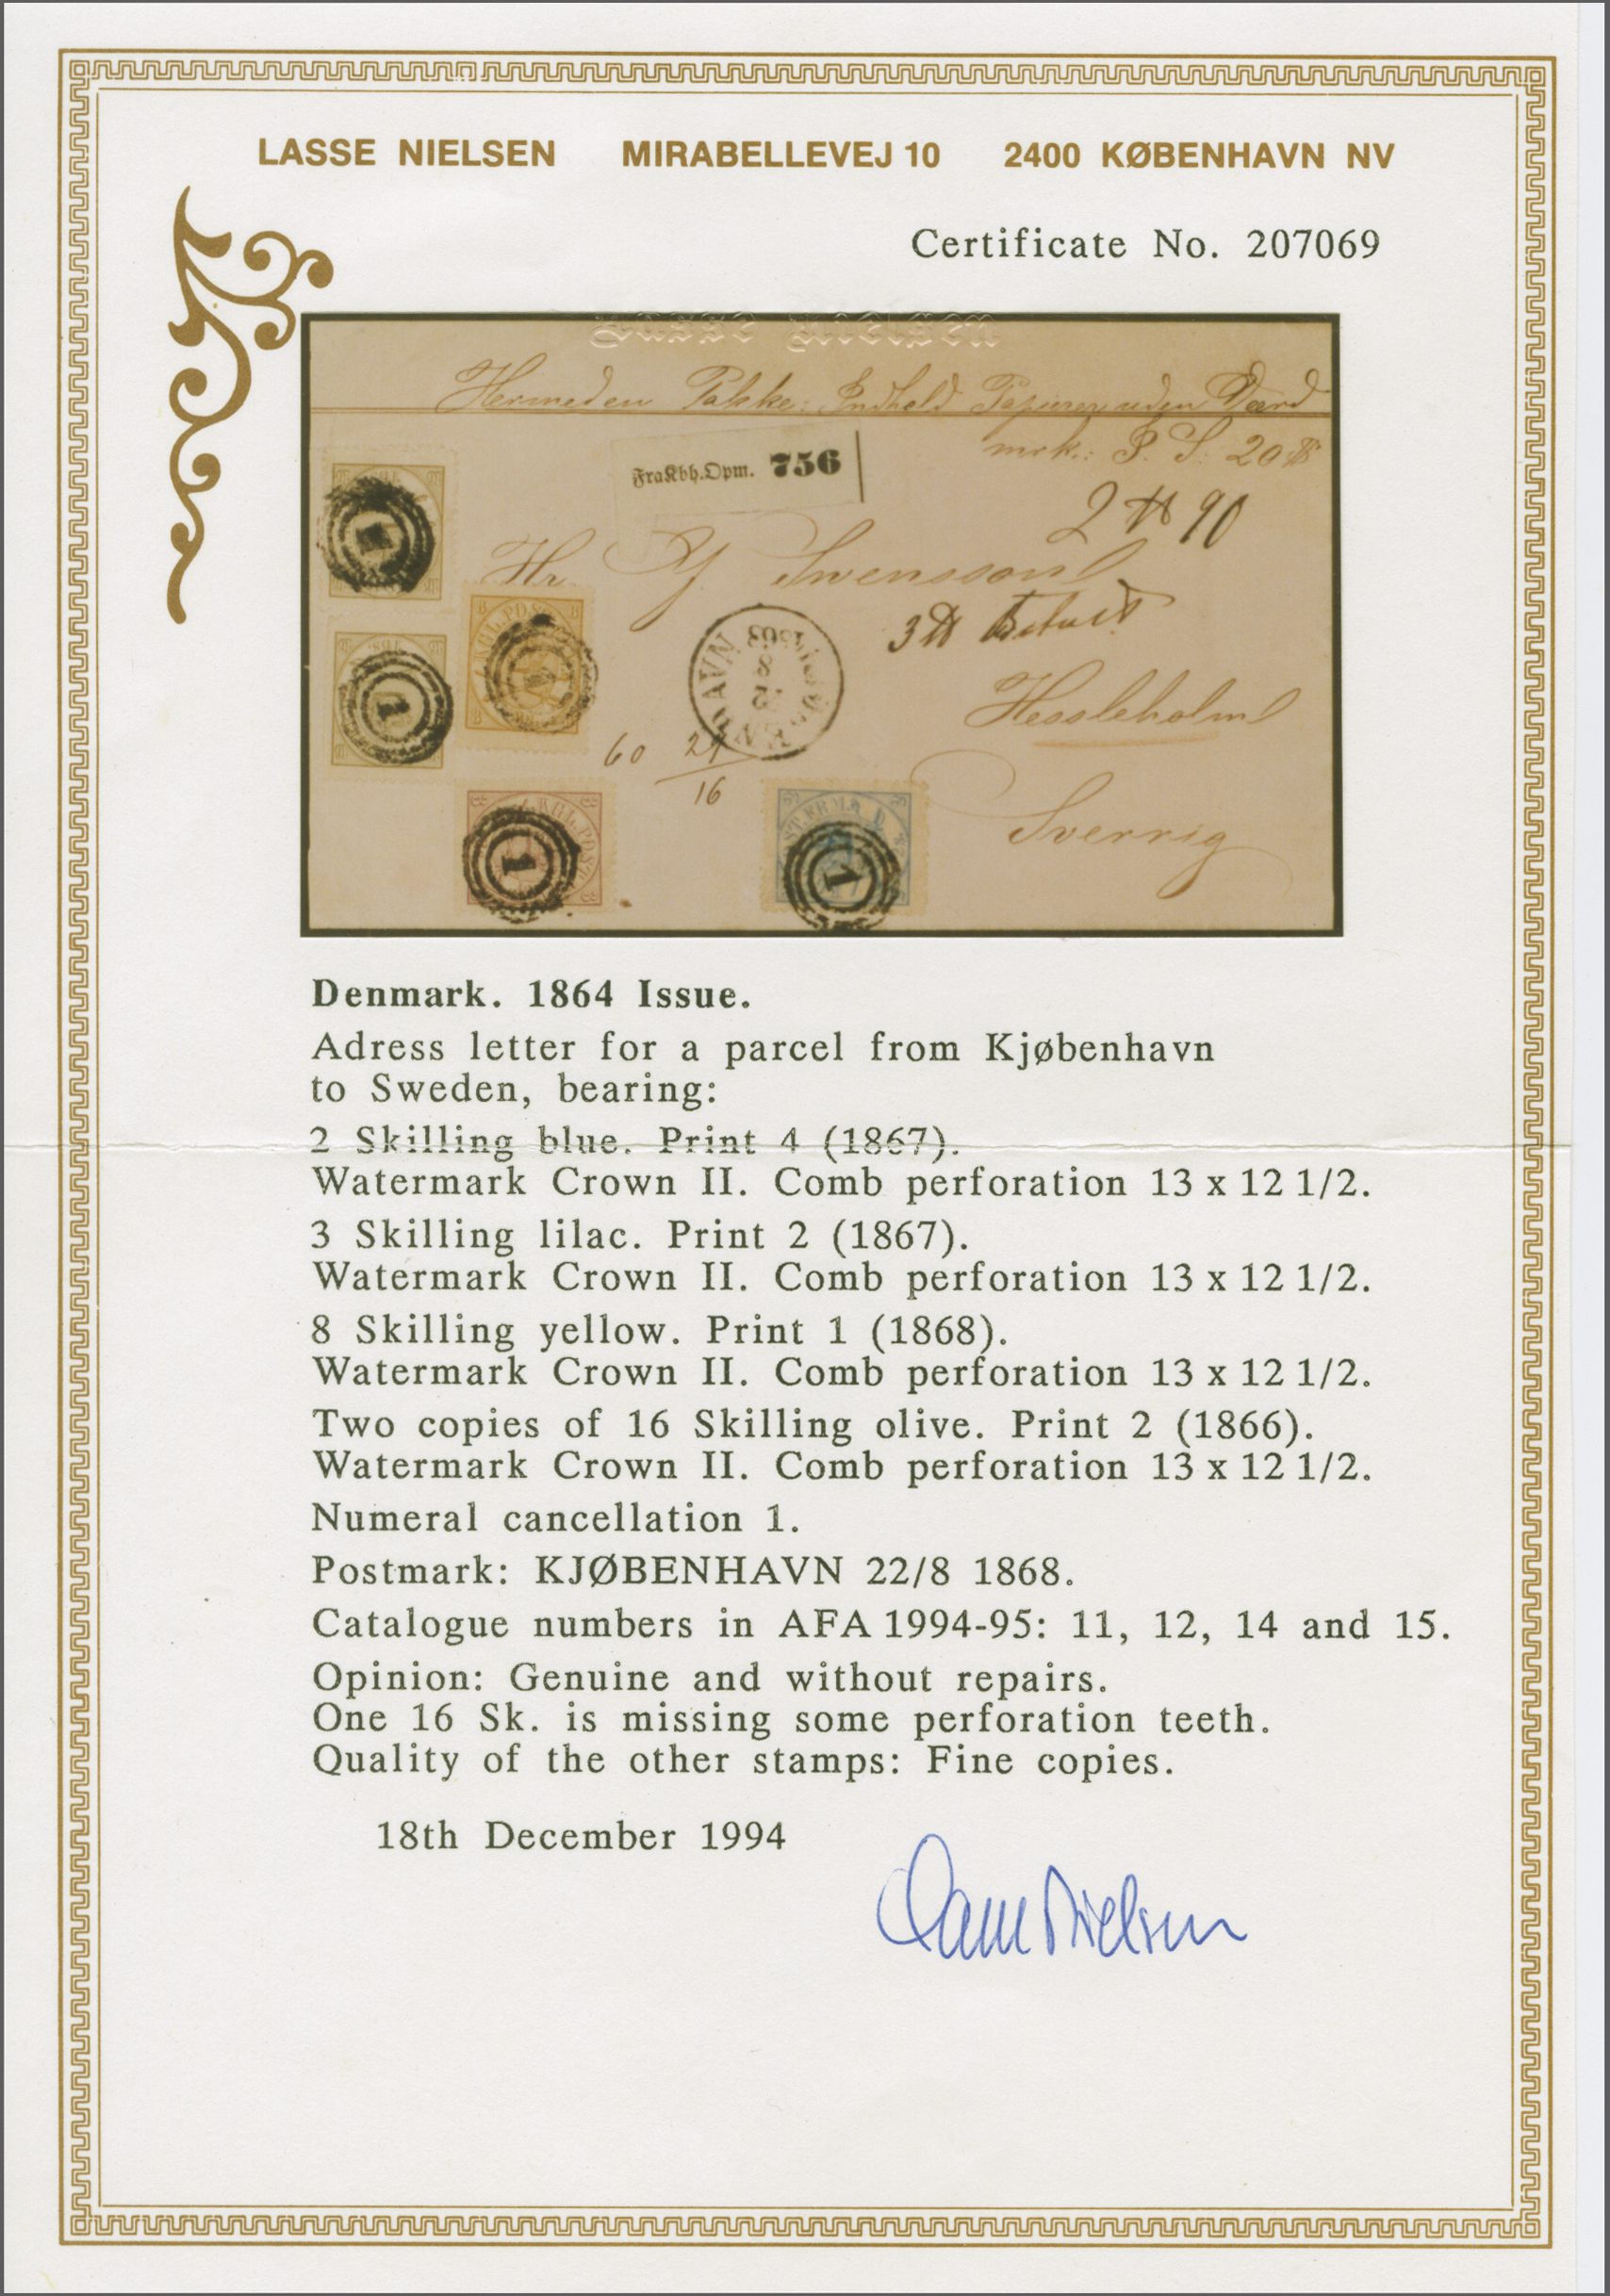 LASSE NIELSEN MIRABELLEVEJ 10 2400 KØBENHAVN NV
Certificate No. 207069
Lasse Nielsen
Hermed en Pakke: Indhold Papirer uden Værd
mrk.: P. S. 20
FraKbh.Opm. 756
2 90
Hr. Swensson
3
Hessleholm
60 24
16
Sverrig
1
1
1
Denmark. 1864 Issue.
Adress letter for a parcel from Kjøbenhavn
to Sweden, bearing:
2 Skilling blue. Print 4 (1867).
Watermark Crown II. Comb perforation 13 x 12 1/2.
3 Skilling lilac. Print 2 (1867).
Watermark Crown II. Comb perforation 13 x 12 1/2.
8 Skilling yellow. Print 1 (1868).
Watermark Crown II. Comb perforation 13 x 12 1/2.
Two copies of 16 Skilling olive. Print 2 (1866).
Watermark Crown II. Comb perforation 13 x 12 1/2.
Numeral cancellation 1.
Postmark: KJØBENHAVN 22/8 1868.
Catalogue numbers in AFA 1994-95: 11, 12, 14 and 15.
Opinion: Genuine and without repairs.
One 16 Sk. is missing some perforation teeth.
Quality of the other stamps: Fine copies.
18th December 1994
Lasse Nielsen